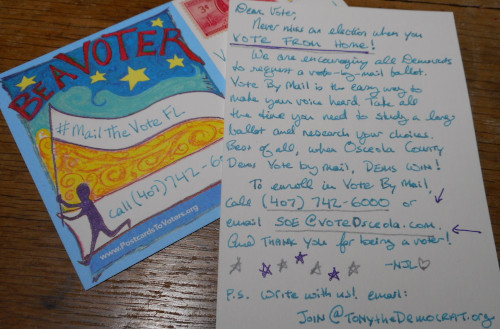 BE A VOTER
#MailTheVoteFL
Call (407) 742-6
www.PostcardsToVoters.org
Dear Voter,
Never miss an election when you
VOTE FROM HOME!
We are encouraging all Democrats
to request a vote-by-mail ballot.
Vote By Mail is the easy way to
make your voice heard. Take all
the time you need to study a large
ballot and research your choices.
Best of all, when Osceola County
Dems Vote by mail, DEMS WIN!
To enroll in Vote By Mail,
call (407) 742-6000 or
email SOE@VOTEOsceola.com.
And THANK you for being a voter!
-NJL
P.S. Write with us! email:
JOIN@TONYtheDEMOCRAT.org